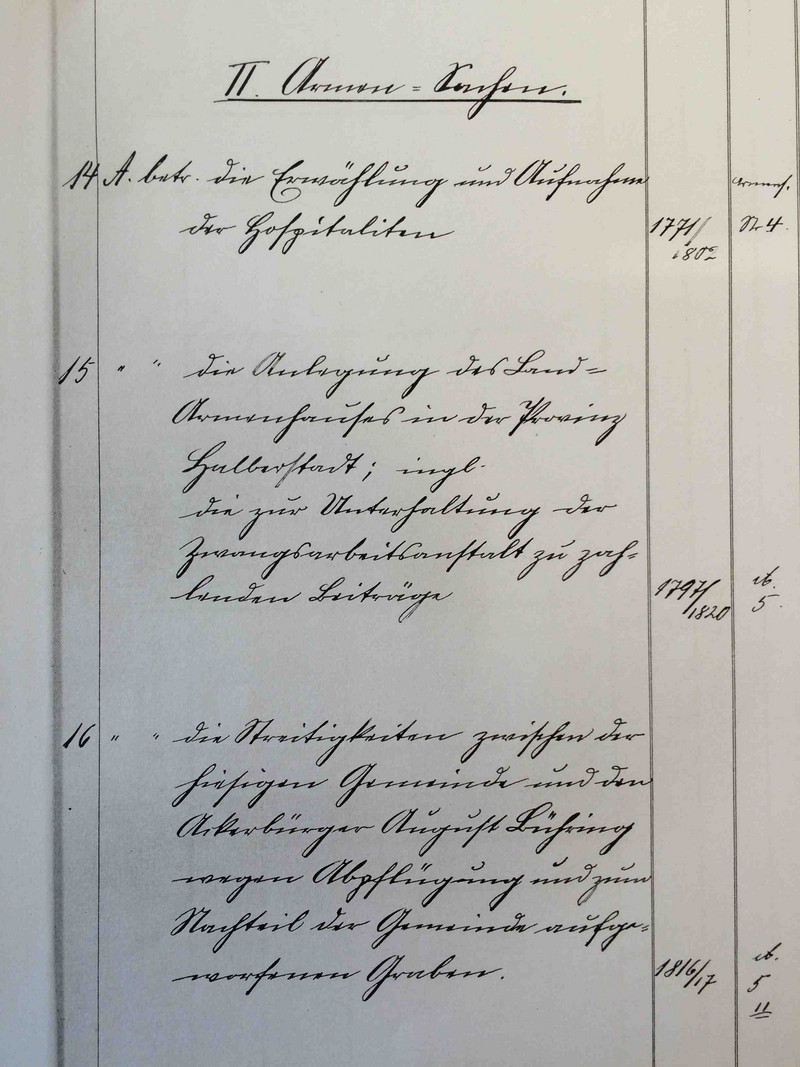 II. Armen = Sachen.
14 A. betr. die Erwählung und Aufnahme
der Hospitaliten 1771/1802 No 4.
15 " " die Anlegung des Land=
Armenhauses in der Provinz
Halberstadt; ingl.
die zur Unterhaltung der
Zwangsarbeitsanstalt zu zah=
lenden Beiträge 1797/1820 5.
16 " " die Streitigkeiten zwischen der
hiesigen Gemeinde und den
Ackerbürger August Bühring
wegen Abpflügung und zum
Nachteil der Gemeinde aufge=
worfenen Graben. 1816/17 5
II